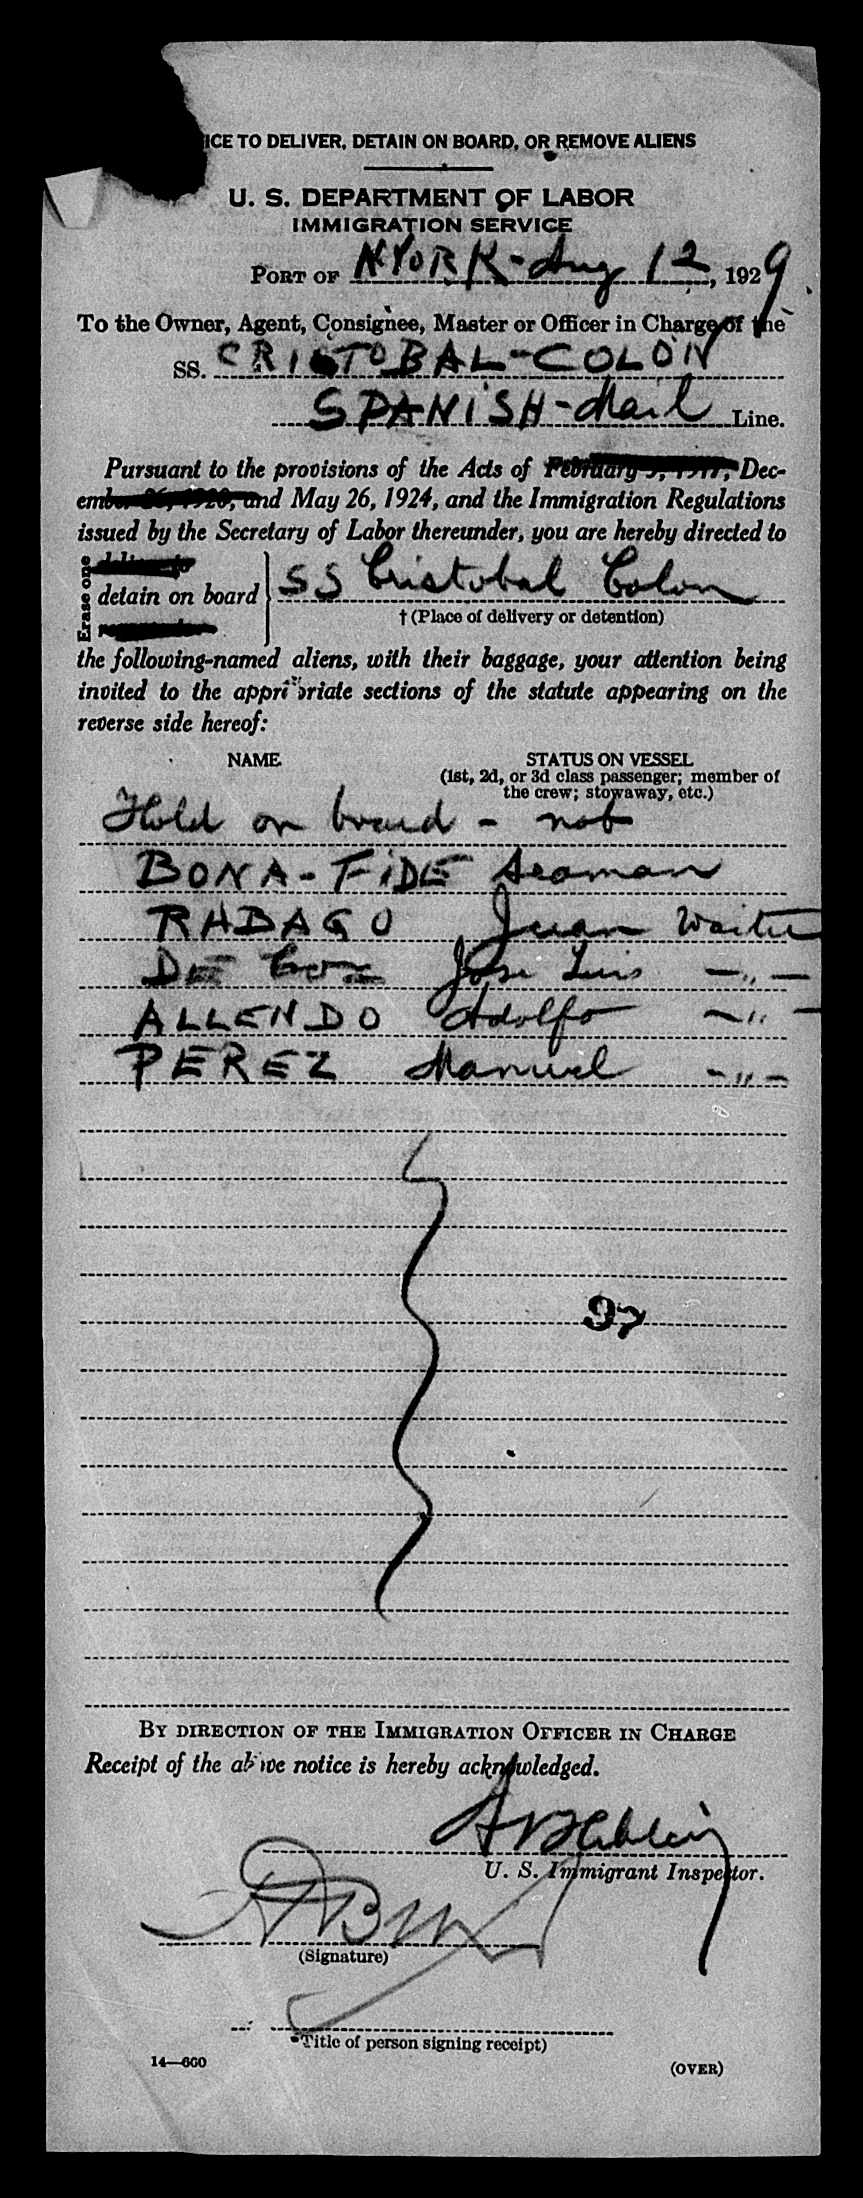 ICE TO DELIVER, DETAIN ON BOARD, OR REMOVE ALIENS
U. S. DEPARTMENT OF LABOR
IMMIGRATION SERVICE
PORT OF N YORK - Aug 12, 1929
To the Owner, Agent, Consignee, Master or Officer in Charge of the
SS. CRISTOBAL-COLON
SPANISH-Mail Line.
Pursuant to the provisions of the Acts of February 5, 1917, Dec-
ember 26, 1920, and May 26, 1924, and the Immigration Regulations
issued by the Secretary of Labor thereunder, you are hereby directed to
Erase one
deliver to
detain on board SS Cristobal Colon
† (Place of delivery or detention)
the following-named aliens, with their baggage, your attention being
invited to the appropriate sections of the statute appearing on the
reverse side hereof:
NAME STATUS ON VESSEL
(1st, 2d, or 3d class passenger; member of
the crew; stowaway, etc.)
Hold on board - not
BONA-FIDE Seaman
RABAGO Juan Waiter
DE Jose Luis - " -
ALLENDO Adolfo - " -
PEREZ Manuel - " -
97
BY DIRECTION OF THE IMMIGRATION OFFICER IN CHARGE
Receipt of the above notice is hereby acknowledged.
U. S. Immigrant Inspector.
(Signature)
*Title of person signing receipt)
14—660 (OVER)